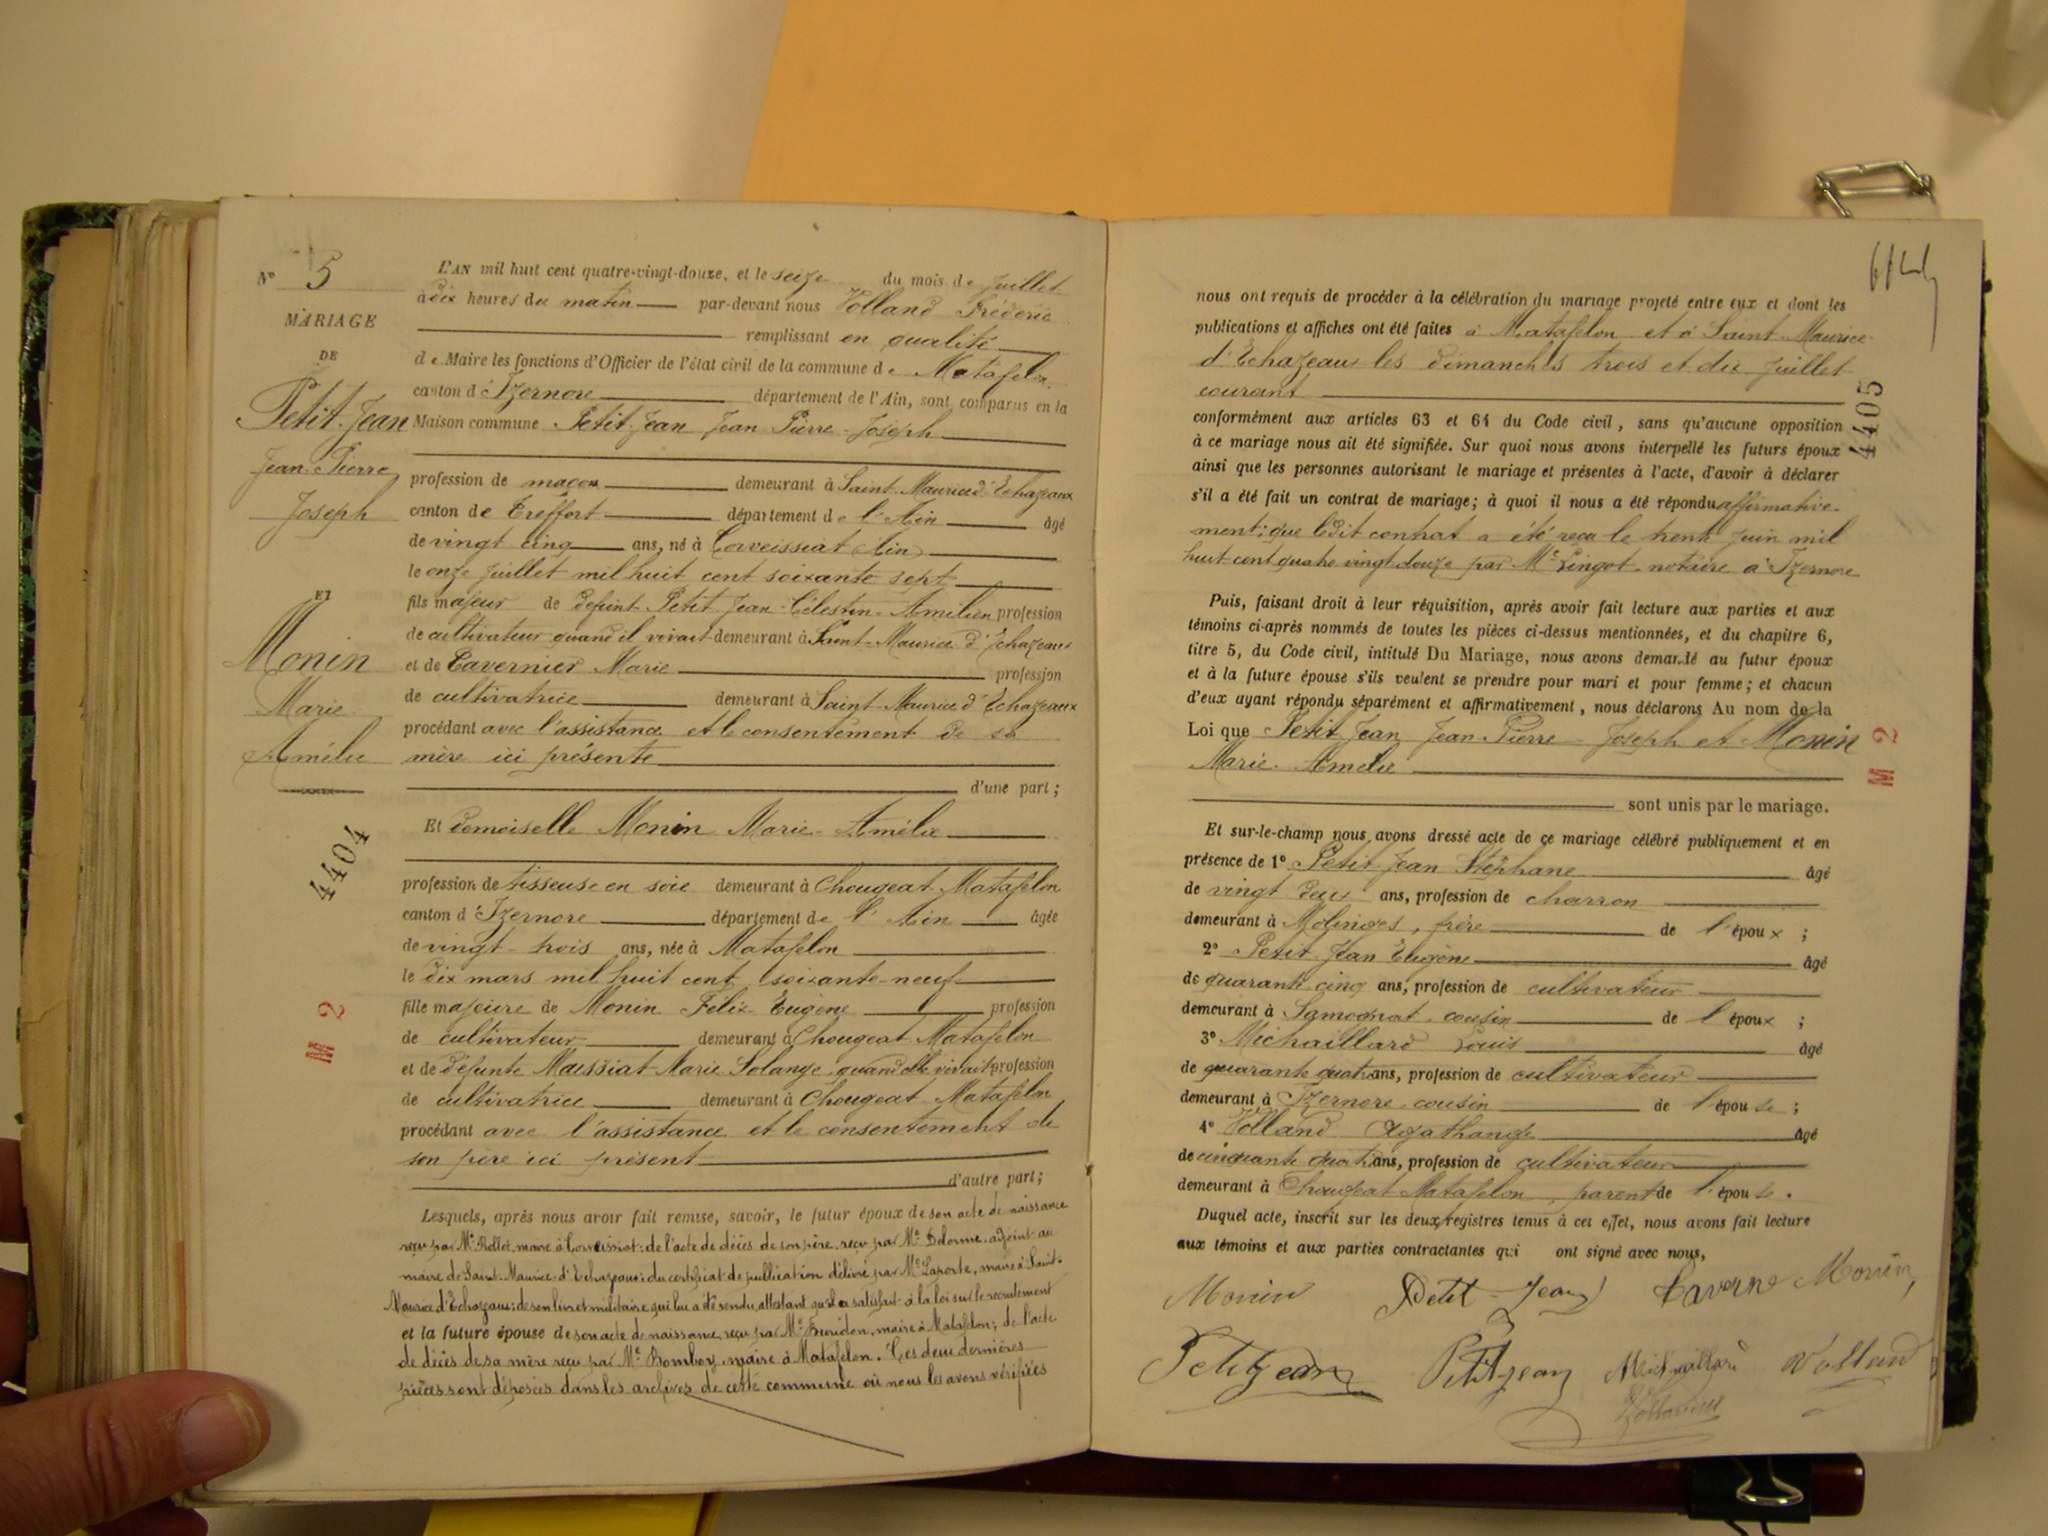 N° 5
MARIAGE
DE
Petit-Jean
Jean-Pierre
Joseph
ET
Monin
Marie
Amélie
4404
M 2
L'AN mil huit cent quatre-vingt-douze, et le seize du mois de Juillet
à dix heures du matin par-devant nous Volland Frédéric
remplissant en qualité
de Maire les fonctions d'Officier de l'état civil de la commune de Matafelon
canton d'Izernore département de l'Ain, sont comparus en la
Maison commune Petit-Jean Jean Pierre-Joseph
profession de maçon demeurant à Saint-Maurice d'Echazeaux
canton de Treffort département de l'Ain âgé
de vingt cinq ans, né à Corveissiat Ain
le onze juillet mil huit cent soixante sept
fils majeur de défunt Petit Jean-Célestin-Amilien profession
de cultivateur quand il vivait demeurant à Saint-Maurice d'Echazeaux
et de Tavernier Marie profession
de cultivatrice demeurant à Saint-Maurice d'Echazeaux
procédant avec l'assistance et le consentement de sa
mère ici présente
d'une part;
Et demoiselle Monin Marie-Amélie
profession de tisseuse en soie demeurant à Chougeat-Matafelon
canton d'Izernore département de l'Ain âgée
de vingt-trois ans, née à Matafelon
le dix mars mil huit cent soixante-neuf
fille majeure de Monin Félix-Eugène profession
de cultivateur demeurant à Chougeat Matafelon
et de défunte Maissiat Marie Solange quand elle vivait profession
de cultivatrice demeurant à Chougeat-Matafelon
procédant avec l'assistance et le consentement de
son père ici présent
d'autre part;
Lesquels, après nous avoir fait remise, savoir, le futur époux de son acte de naissance
reçu par Mr Rollet, maire à Corveissiat; de l'acte de décès de son père reçu par Mr Delorme, adjoint au
maire de Saint-Maurice-d'Echazeaux; du certificat de publication délivré par Mr Laporte, maire à Saint-
Maurice d'Echazeaux; de son livret militaire, qui lui a été rendu, attestant qu'il a satisfait à la loi sur le recrutement
et la future épouse de son acte de naissance reçu par Mr Buridon, maire à Matafelon; de l'acte
de décès de sa mère reçu par Mr Bomboy, maire à Matafelon. Ces deux dernières
pièces sont déposées dans les archives de cette commune où nous les avons vérifiées
nous ont requis de procéder à la célébration du mariage projeté entre eux et dont les
publications et affiches ont été faites à Matafelon et à Saint-Maurice
d'Echazeaux les dimanches trois et dix juillet
courant
conformément aux articles 63 et 64 du Code civil, sans qu'aucune opposition
à ce mariage nous ait été signifiée. Sur quoi nous avons interpellé les futurs époux
ainsi que les personnes autorisant le mariage et présentes à l'acte, d'avoir à déclarer
s'il a été fait un contrat de mariage; à quoi il nous a été répondu affirmative-
ment; que ledit contrat a été reçu le trente juin mil
huit cent quatre vingt douze par Me Lingot, notaire à Izernore
Puis, faisant droit à leur réquisition, après avoir fait lecture aux parties et aux
témoins ci-après nommés de toutes les pièces ci-dessus mentionnées, et du chapitre 6,
titre 5, du Code civil, intitulé Du Mariage, nous avons demandé au futur époux
et à la future épouse s'ils veulent se prendre pour mari et pour femme; et chacun
d'eux ayant répondu séparément et affirmativement, nous déclarons Au nom de la
Loi que Petit Jean Jean-Pierre-Joseph et Monin
Marie-Amélie
sont unis par le mariage.
Et sur-le-champ nous avons dressé acte de ce mariage célébré publiquement et en
présence de 1° Petit-Jean Stéphane âgé
de vingt deux ans, profession de charron
demeurant à Molinges, frère de l'époux;
2° Petit-Jean Eugène âgé
de quarante cinq ans, profession de cultivateur
demeurant à Samognat, cousin de l'époux;
3° Michaillard Louis âgé
de quarante quatre ans, profession de cultivateur
demeurant à Izernore, cousin de l'épouse;
4° Volland Agathange âgé
de cinquante quatre ans, profession de cultivateur
demeurant à Chougeat Matafelon, parent de l'épouse.
Duquel acte, inscrit sur les deux registres tenus à cet effet, nous avons fait lecture
aux témoins et aux parties contractantes qui ont signé avec nous,
Monin Petit-Jean Taverne Monin
Petitjean Petitjean Michaillard Volland
4405
M 2